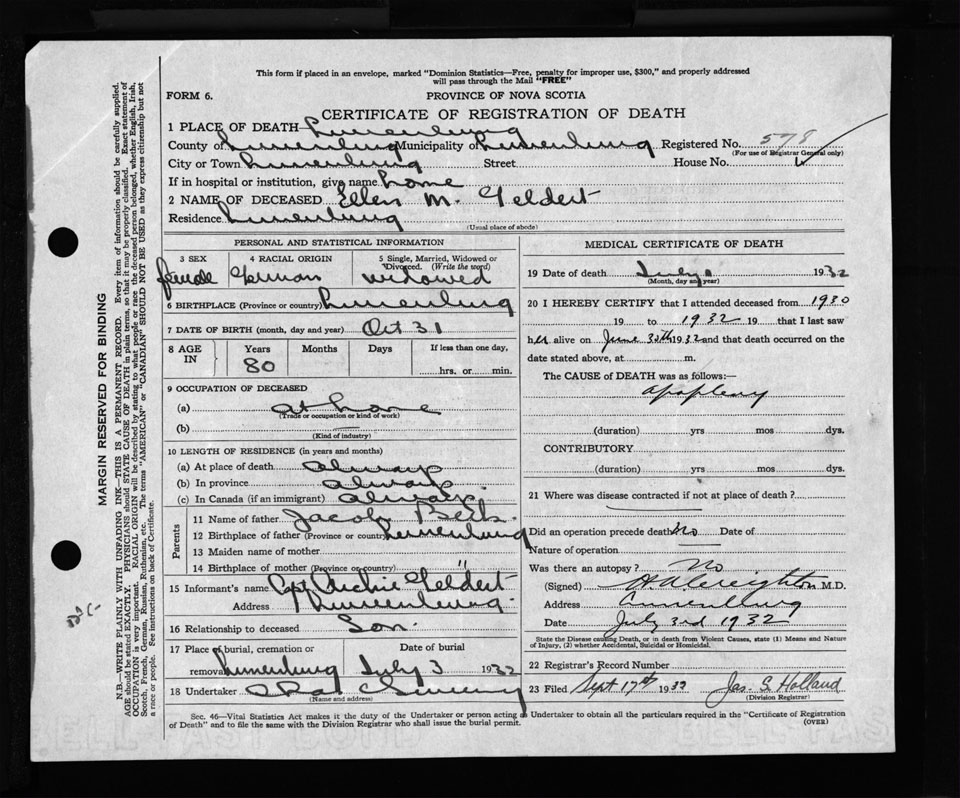 This form if placed in an envelope, marked "Dominion Statistics—Free, penalty for improper use, $300," and properly addressed
will pass through the Mail "FREE"
FORM 6.
PROVINCE OF NOVA SCOTIA
CERTIFICATE OF REGISTRATION OF DEATH
1 PLACE OF DEATH—Lunenburg
County of Lunenburg Municipality of Lunenburg Registered No. 578
(For use of Registrar General only)
City or Town Lunenburg Street House No.
If in hospital or institution, give name home
2 NAME OF DECEASED Ellen M. Geldert
Residence Lunenburg
(Usual place of abode)
PERSONAL AND STATISTICAL INFORMATION
3 SEX 4 RACIAL ORIGIN 5 Single, Married, Widowed or
Divorced. (Write the word)
female German widowed
6 BIRTHPLACE (Province or country) Lunenburg
7 DATE OF BIRTH (month, day and year) Oct 31
8 AGE IN Years Months Days If less than one day,
80 hrs. or min.
9 OCCUPATION OF DECEASED
(a) at home
(Trade or occupation or kind of work)
(b) —
(Kind of industry)
10 LENGTH OF RESIDENCE (in years and months)
(a) At place of death always
(b) In province always
(c) In Canada (if an immigrant) always
Parents
11 Name of father Jacob Beck
12 Birthplace of father (Province or country) Lunenburg
13 Maiden name of mother
14 Birthplace of mother (Province or country) "
15 Informant's name Capt Archie Geldert
Address Lunenburg
16 Relationship to deceased Son.
17 Place of burial, cremation or Date of burial
removal Lunenburg July 3 1932
18 Undertaker
(Name and address)
MEDICAL CERTIFICATE OF DEATH
19 Date of death July 1932
(Month, day and year)
20 I HEREBY CERTIFY that I attended deceased from 1930
19 to 1932 19 that I last saw
her alive on June 30th 1932 and that death occurred on the
date stated above, at m.
The CAUSE of DEATH was as follows:—
apoplexy
(duration) yrs mos dys.
CONTRIBUTORY
(duration) yrs mos dys.
21 Where was disease contracted if not at place of death?
Did an operation precede death No Date of
Nature of operation
Was there an autopsy? No
(Signed) H.A. Creighton M.D.
Address Lunenburg
Date July 3rd 1932
State the Disease causing Death, or in death from Violent Causes, state (1) Means and Nature
of Injury, (2) whether Accidental, Suicidal or Homicidal.
22 Registrar's Record Number
23 Filed Sept 17th 1932 Jas. S. Holland
(Division Registrar)
Sec. 46—Vital Statistics Act makes it the duty of the Undertaker or person acting as Undertaker to obtain all the particulars required in the "Certificate of Registration
of Death" and to file the same with the Division Registrar who shall issue the burial permit. (OVER)
MARGIN RESERVED FOR BINDING
N.B.—WRITE PLAINLY WITH UNFADING INK—THIS IS A PERMANENT RECORD. Every item of information should be carefully supplied.
AGE should be stated EXACTLY. PHYSICIANS should STATE CAUSE OF DEATH in plain terms, so that it may be properly classified. Exact statement of
OCCUPATION is very important. RACIAL ORIGIN will be described by stating to what people or race the deceased person belonged, whether English, Irish,
Scotch, French, German, Russian, Ruthenian, etc. The terms "AMERICAN" or "CANADIAN" SHOULD NOT BE USED as they express citizenship but not
a race or people. See instructions on back of Certificate.